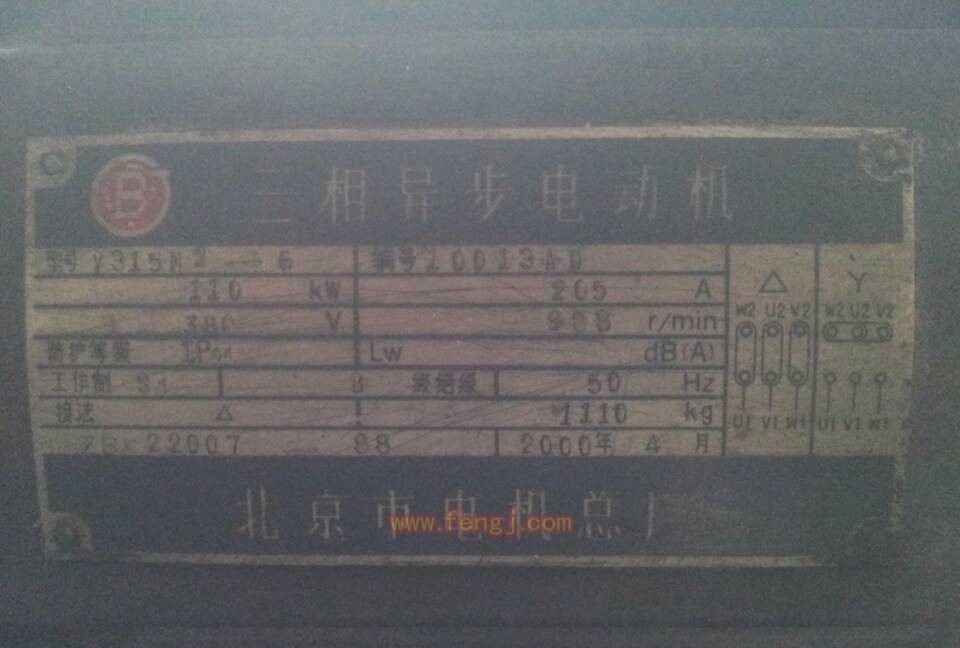 B 三相异步电动机
型号 Y315M2-6 编号 10013AD
110 kW 205 A
380 V 988 r/min
防护等级 Lw dB(A)
工作制 S1 B 级绝缘 50 Hz
接法 △ 1110 kg
ZBK22007 88 2000年 4 月
△ Y
W2 U2 V2 W2 U2 V2
U1 V1 W1 U1 V1 W1
北京市电机总厂
www.fengj.com